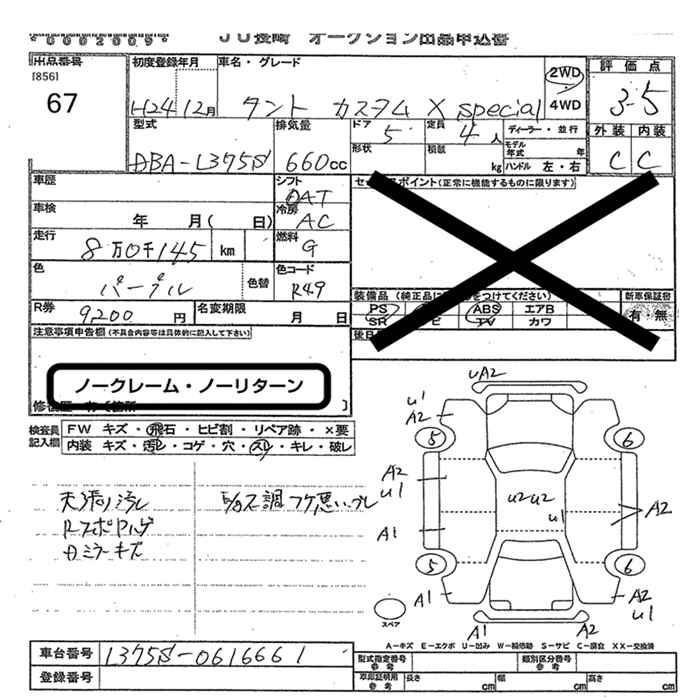 *0002009*
JU長崎 オークション出品申込書
出品番号
[856]
67
初度登録年月
H24 12月
車名・グレード
タント カスタム X special
2WD
4WD
評価点
3.5
外装 内装
C C
型式
DBA-L375S
排気量
660cc
ドア
5
形状
定員
4人
積載
kg
ディーラー・並行
モデル年式 年
ハンドル 左・右
車歴
シフト
DAT
車検
年 月( 日)
冷房
AC
走行
8万0千145 km
燃料
G
色
パープル
色替
色コード
R49
R券
9,200円
名変期限
月 日
ポイント(正常に機能するものに限ります)
装備品
をつけてください)
PS
ABS
エアB
SR
TV
カワ
新車保証書
有・無
注意事項申告欄(不具合内容等は具体的に記入して下さい)
ノークレーム・ノーリターン
検査員記入欄
FW キズ・飛石・ヒビ割・リペア跡・×要
内装 キズ・汚レ・コゲ・穴・スレ・キレ・破レ
天張り汚レ
Rスポイラーハゲ
カミラーキズ
UA2
U1
A2
5
6
A2
U1
U2 U2
U1
A2
A1
5
6
A1
A2
U1
A1
A2
スペア
A-キズ E-エクボ U-凹み W-補修跡 S-サビ C-腐食 XX-交換済
車台番号
L375S-0616661
登録番号
型式指定番号
参考
類別区分番号
参考
車庫証明用
参考
長さ
cm
幅
cm
高さ
cm